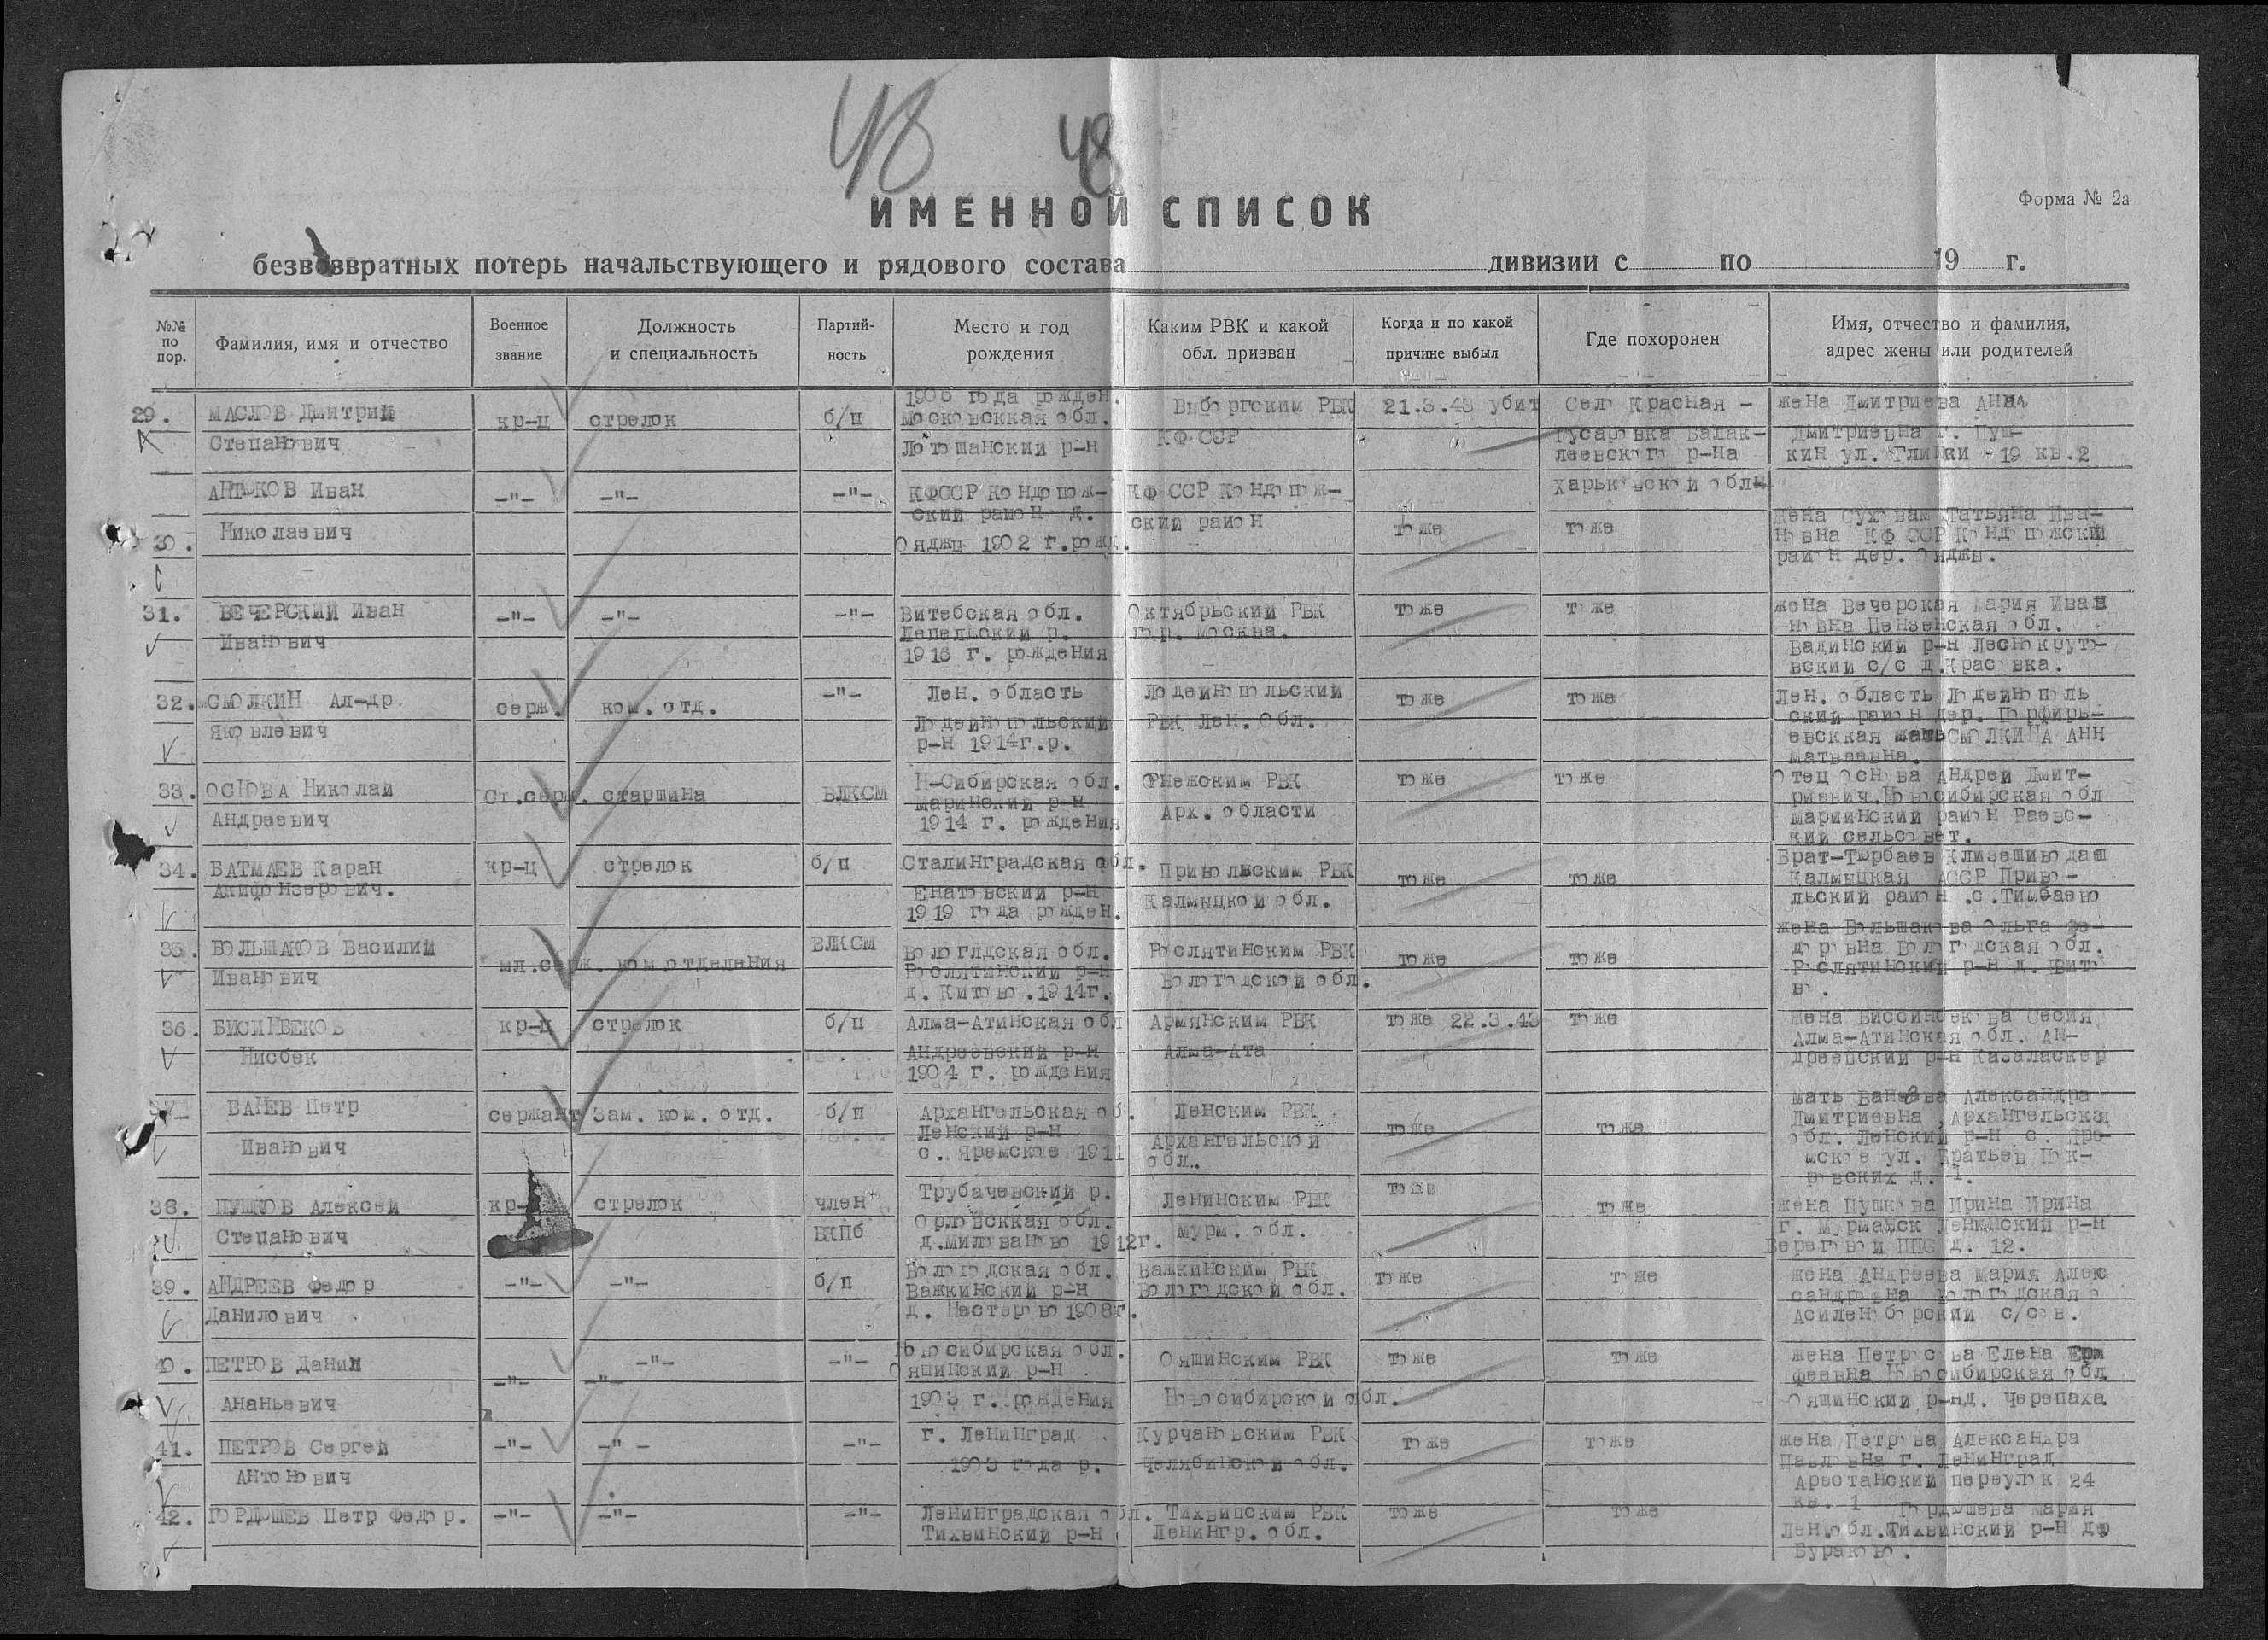 48 48
ИМЕННОЙ СПИСОК
Форма № 2а
безвозвратных потерь начальствующего и рядового состава дивизии с по 19 г.
№№ по пор.
Фамилия, имя и отчество
Военное звание
Должность и специальность
Партий-ность
Место и год рождения
Каким РВК и какой обл. призван
Когда и по какой причине выбыл
Где похоронен
Имя, отчество и фамилия, адрес жены или родителей
29. МАСЛОВ Дмитрий Степанович
кр-ц стрелок б/п
года рожден.
Московсккая обл.
Лотошанский р-н
Выборгским РВК
КФ ССР
21.3.43 убит
Село Красная -
Гусаровка Балак-
леевского р-на
Харьковской обл
жена Дмитриева Анна
Дмитриевна г. Пуш-
кин ул. Глинки - 19 кв.2
30. Иван
Николаевич
-"- -"- -"-
КФССР Кондопож-
ский район д.
Ояджы 1902 г.рожд.
КФ ССР Кондопож-
ский район
тоже тоже
жена Татьяна Ива-
новна КФ ССР Кондопожский
район дер. Ояджы.
31. ВЕЧЕРСКИЙ Иван
Иванович
-"- -"- -"-
Витебская обл.
Лепельский р.
1916 г. рождения
Октябрьский РВК
гор. Москва.
тоже тоже
жена Вечерская Мария Иван
новна Пензенская обл.
Вадинский р-н Леснокруто-
вский с/с д.Красовка.
32. СМОЛКИН Ал-др.
Яковлевич
серж. ком.отд. -"-
Лен. область
Лодейнопольский
р-н 1914г.р.
Лодейнопольский
РВК Лен. Обл.
тоже тоже
Лен. область Лодейнополь
ский район дер. Порфирь-
евсккая мать СМОЛКИНА АНН
Матвеевна.
33. ОСНОВА Николай
Андреевич
Ст.серж. старшина ВЛКСМ
Н-Сибирская обл.
Маринский р-н
1914 г. рождения
Онежским РВК
Арх. области
тоже тоже
Отец Основа Андрей Дмит-
риевич.Новосибирская обл
Мариинский район Раевс-
кий сельсовет.
34. БАТМАЕВ Каран
Акифонзерович.
кр-ц стрелок б/п
Сталинградская обл.
Енатовский р-н
1919 года рожден.
Привольским РВК
Калмыцкой обл.
тоже тоже
Брат-Тюрбаев
Калмыцкая АССР Приво-
льский район .с.Тимбаево
35. БОЛЬШАКОВ Василий
Иванович
мл.серж. ком отделения ВЛКСМ
Вологлдская обл.
Рослятинский р-н
д. Китово.1914г.
Рослятинским РВК
Вологодской обл.
тоже тоже
жена Большакова Ольга Фе-
доровна Вологодская обл.
Рослятинский р-н д. Кито
во.
36. БИСИНБЕКОВ
Нисбек
кр-ц стрелок б/п
Алма-Атинская обл
Андреевский р-н
1904 г. рождения
Армянским РВК
Алма-Ата
тоже 22.3.43 тоже
жена Виссинбекова Сесия
Алма-Атинская обл. Ан-
дреевский р-н Казаласкер
ВАНЕВ Петр
Иванович
сержант Зам. ком. отд. б/п
Архангельская об.
Ленский р-н
с. Яремское 1911
Ленским РВК
Архангельской
обл..
тоже тоже
мать Ванева Александра
Дмитриевна Архангельска
обл. Ленский р-н с. Яре-
мское ул. Братьев Пок-
ровских д. 1.
38. ПУШКОВ Алексей
Степанович
кр- стрелок член ВКПб
Трубачевский р.
Орловсккая обл.
д.Милованово 1912г.
Ленинским РВК
Мурм. обл.
тоже тоже
жена Пушкова Ирина Ирина
г. Мурманск Ленинский р-н
Береговой ППС д. 12.
39. АНДРЕЕВ Федор
Данилович
-"- -"- б/п
Вологодская обл.
Важкинский р-н
д. Нестерово 1908г.
Важкинским РВК
Вологодской обл.
тоже тоже
жена Андреева Мария Алек
сандровна Вологодская о
Асиленоборский с/сов.
40. ПЕТРОВ Данил
Ананьевич
-"- -"- -"- -"-
Новосибирская обл.
Ояшинский р-н
1903 г. рождения
Ояшинским РВК
Новосибирской обл.
тоже тоже
жена Елена
феевна Новосибирская обл
Ояшинский р-нд. Черепаха
41. ПЕТРОВ Сергей
Антонович
-"- -"- -"-
г. Ленинград
1903 года р.
Курчановским РВК
Челябинской обл.
тоже тоже
жена Петрова Александра
Павловна г. Ленинград
Арестанский переулок 24
кв. 1
42. ГОРДЮШЕВ Петр Федор.
-"- -"- -"-
Ленинградская обл.
Тихвинский р-н
Тихвинским РВК
Ленингр. обл.
тоже тоже
Гордюшева Мария
Лен.обл.Тихвинский р-н де
Бураково.